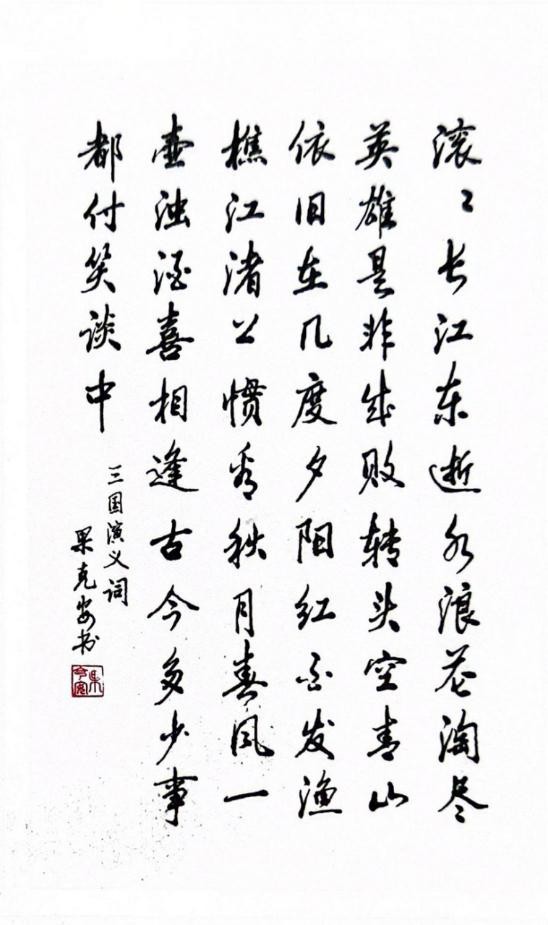 滚〻长江东逝水浪花淘尽
英雄是非成败转头空青山
依旧在几度夕阳红白发渔
樵江渚上惯看秋月春风一
壶浊酒喜相逢古今多少事
都付笑谈中
三国演义词
果克安书